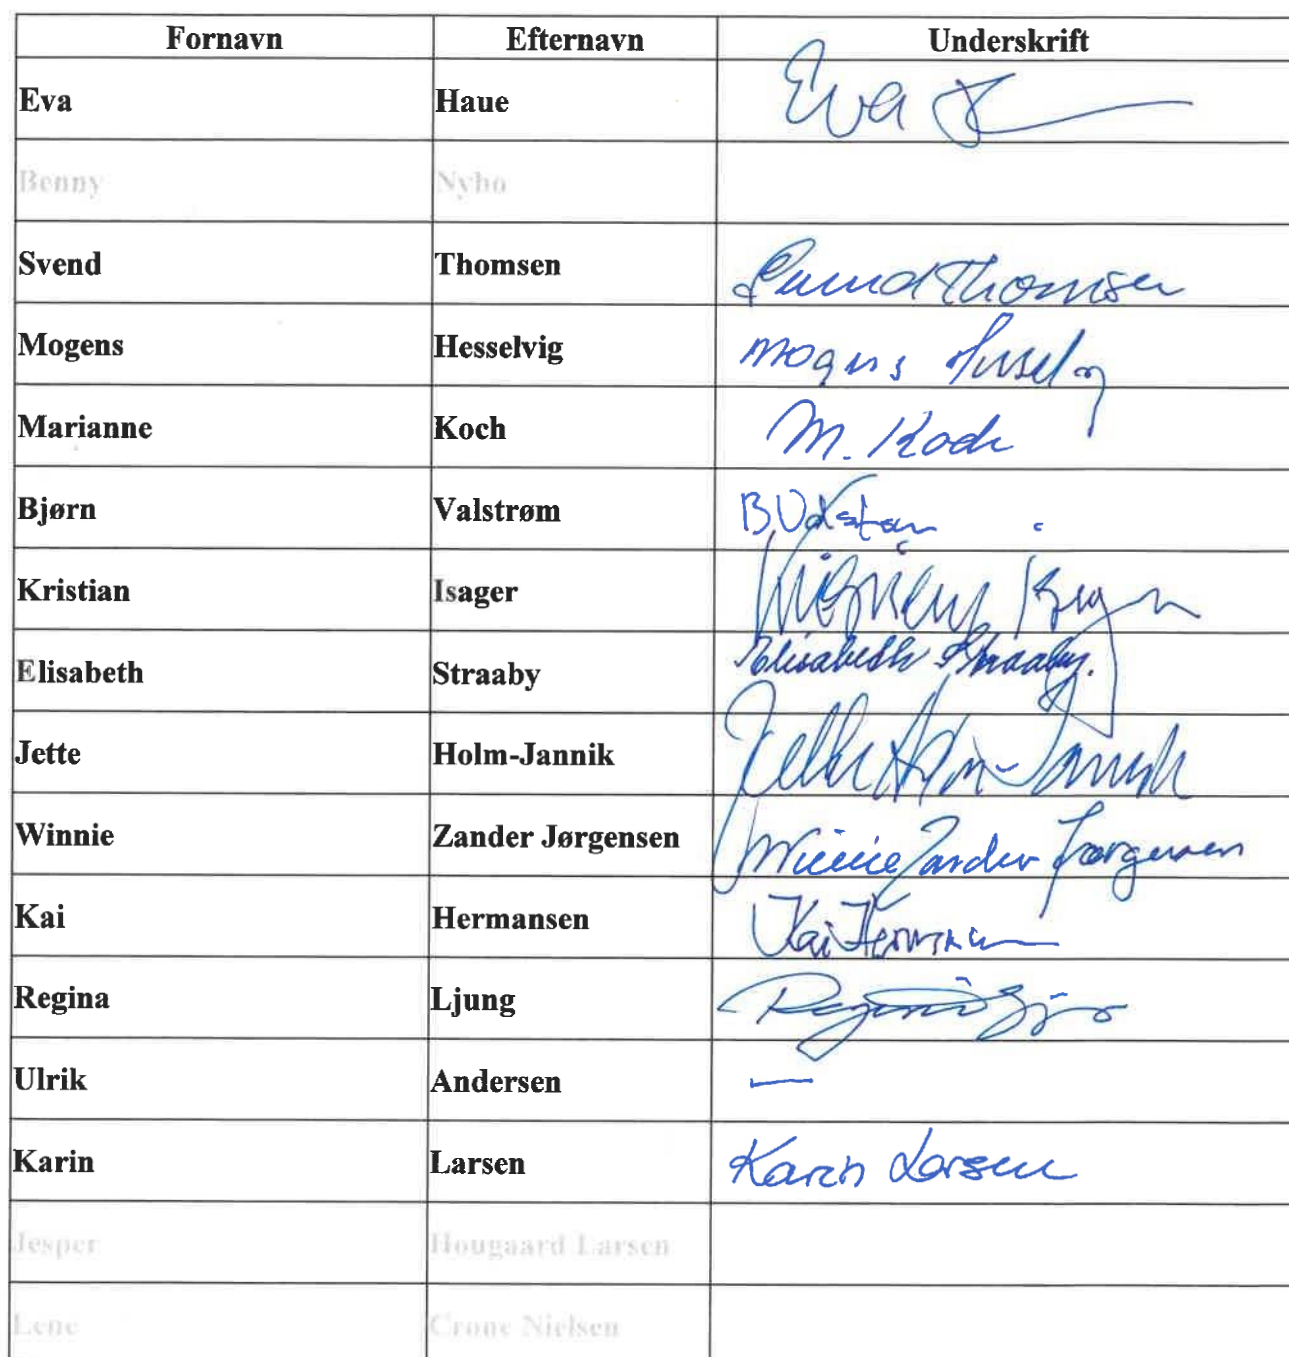 Fornavn Efternavn Underskrift
Eva Haue Eva
Benny Nybo
Svend Thomsen Svend Thomsen
Mogens Hesselvig Mogens
Marianne Koch M. Koch
Bjørn Valstrøm
Kristian Isager
Elisabeth Straaby Elisabeth Straaby.
Jette Holm-Jannik Jette Holm-Jannik
Winnie Zander Jørgensen Winnie Zander Jørgensen
Kai Hermansen Kai Hermansen
Regina Ljung Regina
Ulrik Andersen —
Karin Larsen Karin Larsen
Jesper Hougaard Larsen
Lene Crone Nielsen